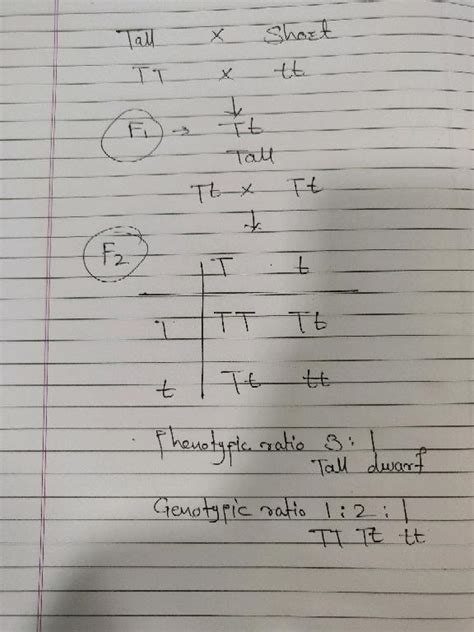 Tall x Short
TT x tt
↓
F1 → Tt
Tall
Tt x Tt
↓
F2
T t
T TT Tt
t Tt tt
Phenotypic ratio 3 : 1
Tall dwarf
Genotypic ratio 1 : 2 : 1
TT Tt tt